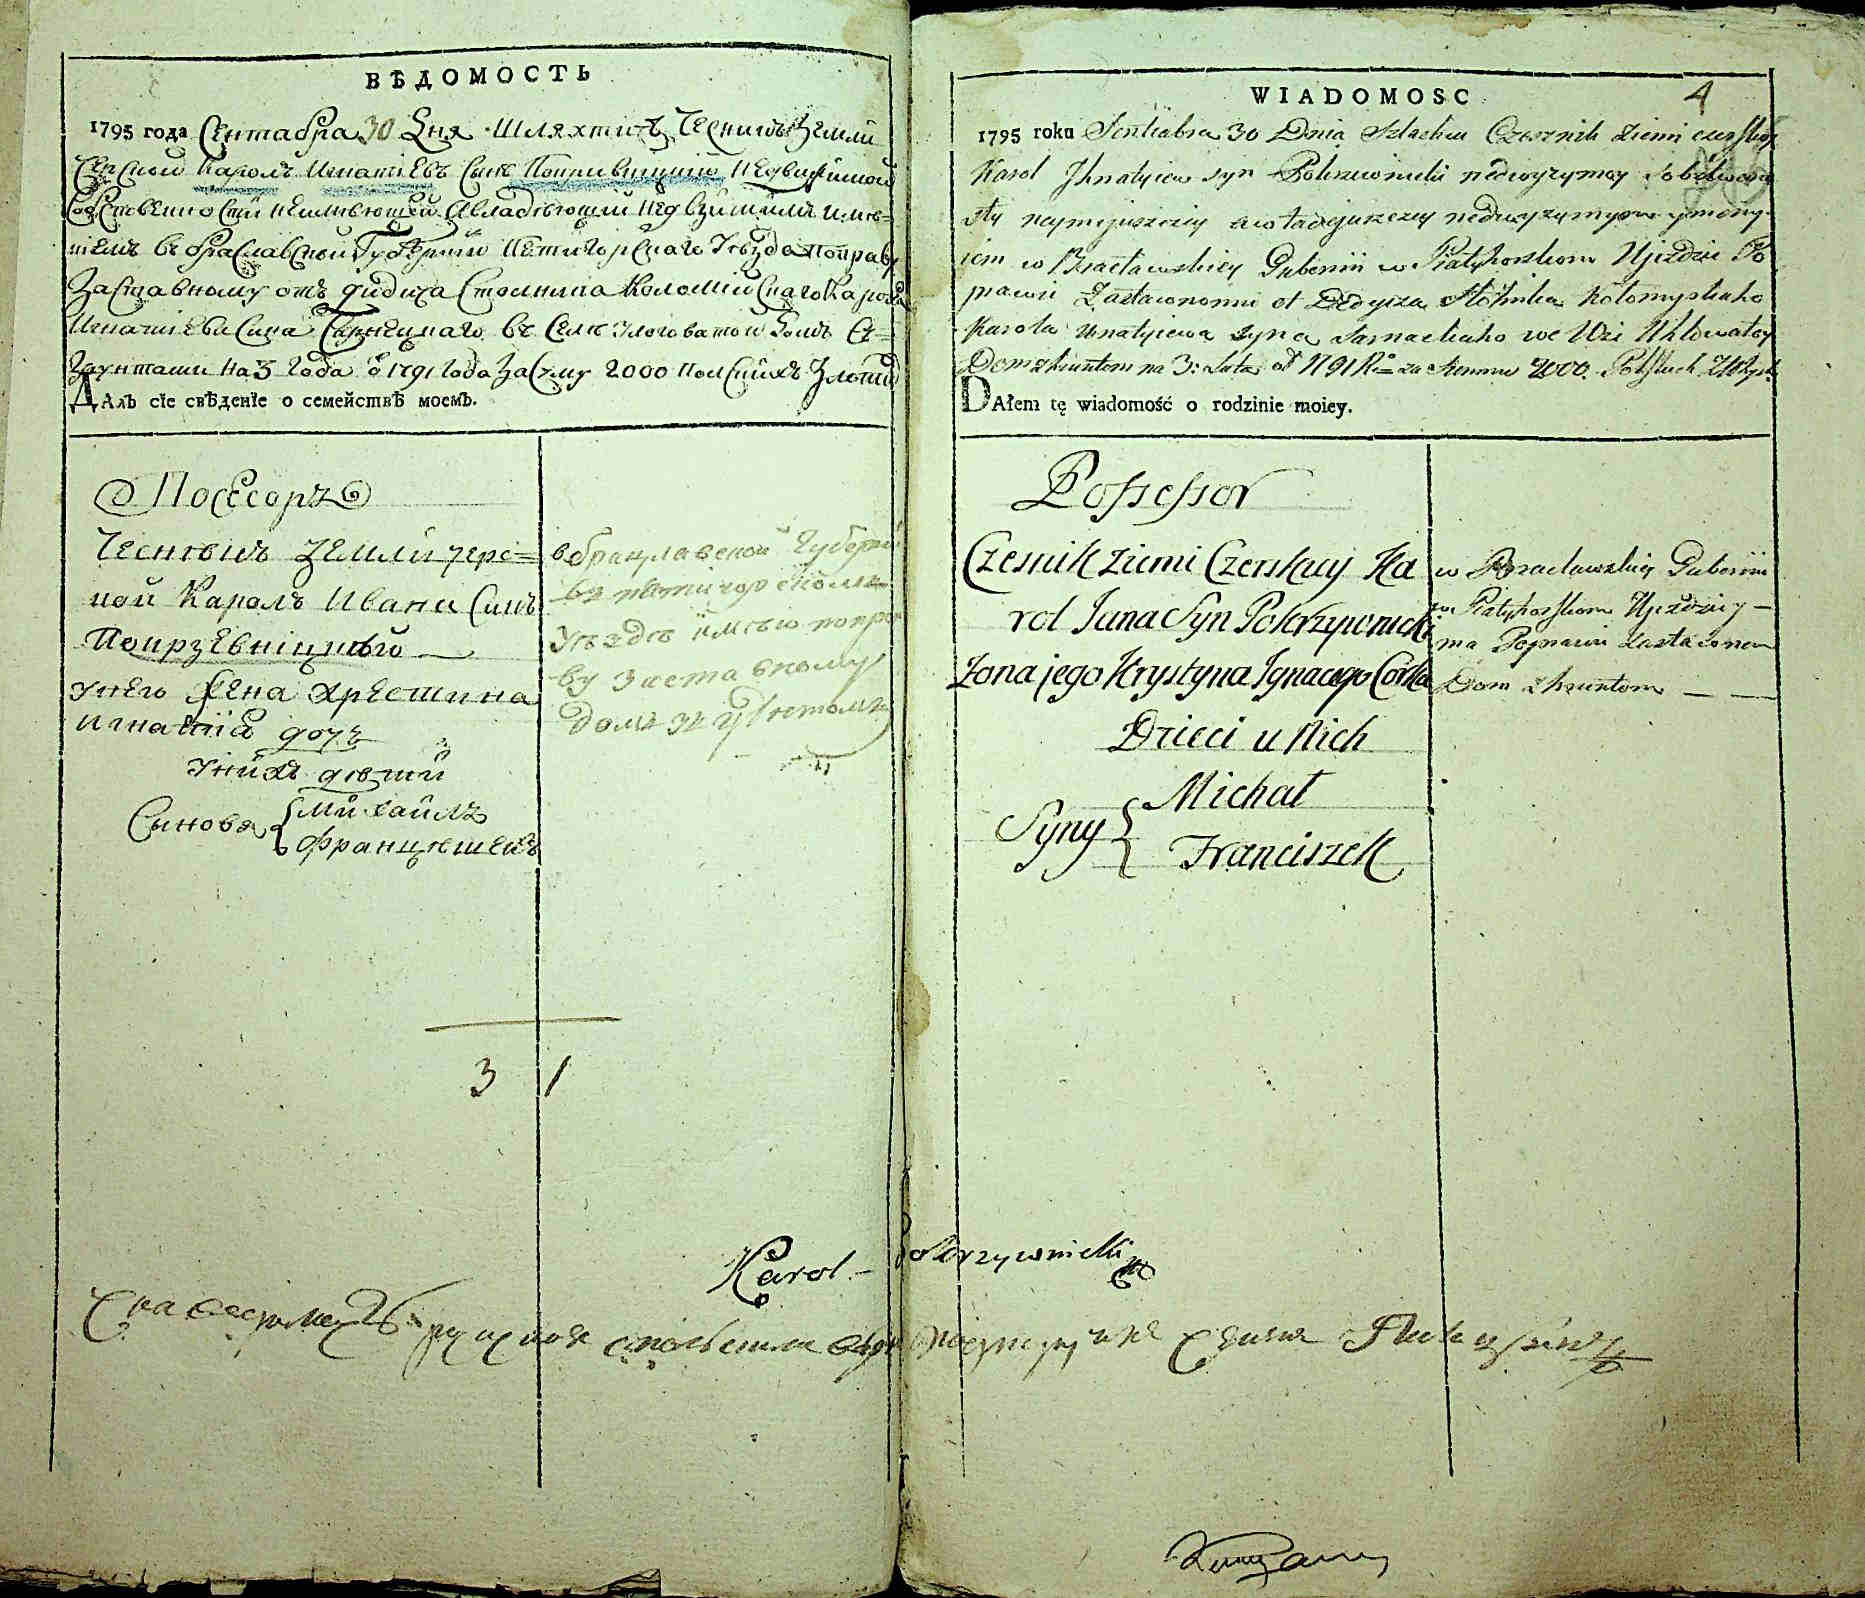 ВѢДОМОСТЬ
1795 года Сентабра 30 Дня Шляхтичъ Чесникъ Земли
Черской Кароль Игнатіевъ Сынъ недвижимой
Собственности неимѣющей Авладѣющий недвижимимъ имѣ=
ниемъ въ Браславской Губернии Пѣтигорскаго Уѣзда поправу
Заставному отъ дидича Столника Коломийскаго Кароля
Игнатіева Сина въ Селѣ Домъ Съ=
Грунтами на 3 года о 1791 года За Суму 2000 полскихъ Злотих
ДАлъ сіе свѣденіе о семействѣ моемъ.
Посесоръ
Чесникъ Земли черс=
кой Каролъ Ивана Синъ
Покрзевницкій
Унего Жена Хрестина
Игнатія дочъ
Унихъ дѣтти
Сынова Михайлъ
Францѣшекъ
вбрацлавской Губерній
въ пятигорскомъ
Уездѣ имѣю попра
ву заставному
домъ зъ грунтомъ
3 1
WIADOMOSC
4
1795 roku Sentiabra 30 Dnia Szlachcic Czesznik Ziemi czerskoj
Karol Ihnatyiew syn Pokrzewnicki nedwyzymoy Sobstwenno
sty neymejuszczey awładejuszczey nedwyzymym ymeny-
iem w Bracławskiey Gubernii w Piatyhorskom Ujezdzie Po
prawu Zastawnomu ot Dedycza Stolnika Kołomyskaho
Karola Ihnatyiewa syna Sarneckaho we Wsi Uhłowatoy
Dom z hruntom na 3: Lata od 1791 R: za Summu 2000. Polskich Złotych
DAłem tę wiadomość o rodzinie moiey.
Possessor
Czesnik Ziemi Czerskiey Ka
rol Jana Syn Pokrzywnicki
Zona jego Krystyna Ignacego Corka
Dzieci u Nich
Syny Michał
Franciszek
w Bracławskiey Gubernii
w Piatyhorskom Ujezdziey
ma Poprawu Zastawnem
Dom z hruntom
Karol Pokrzywnicki